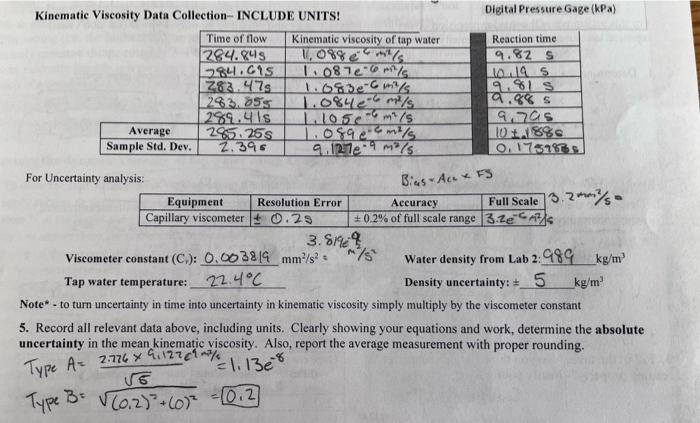 Kinematic Viscosity Data Collection– INCLUDE UNITS!
Digital Pressure Gage (kPa)
Time of flow Kinematic viscosity of tap water Reaction time
284.84s 1.088e-6 m²/s 9.82 s
284.69s 1.087e-6 m²/s 10.19 s
283.47s 1.083e-6 m²/s 9.81 s
283.855 1.084e-6 m²/s 9.88 s
289.41s 1.105e-6 m²/s 9.79s
Average 285.25s 1.089e-6 m²/s
Sample Std. Dev. 2.39s 9.127e-9 m²/s
For Uncertainty analysis:
Bias = Acc x FS
Equipment Resolution Error Accuracy Full Scale 3.2 mm²/s =
Capillary viscometer ± 0.2s ± 0.2% of full scale range 3.2e-6 m²/s
3.819e-9 m²/s²
Viscometer constant (Cᵥ): 0.003819 mm²/s² = Water density from Lab 2: 989 kg/m³
Tap water temperature: 22.4°C Density uncertainty: ± 5 kg/m³
Note* - to turn uncertainty in time into uncertainty in kinematic viscosity simply multiply by the viscometer constant
5. Record all relevant data above, including units. Clearly showing your equations and work, determine the absolute
uncertainty in the mean kinematic viscosity. Also, report the average measurement with proper rounding.
Type A = 2.776 x 9.127e-9 m²/s / √5 = 1.13e-8
Type B = √(0.2)²+(0)² = 0.2